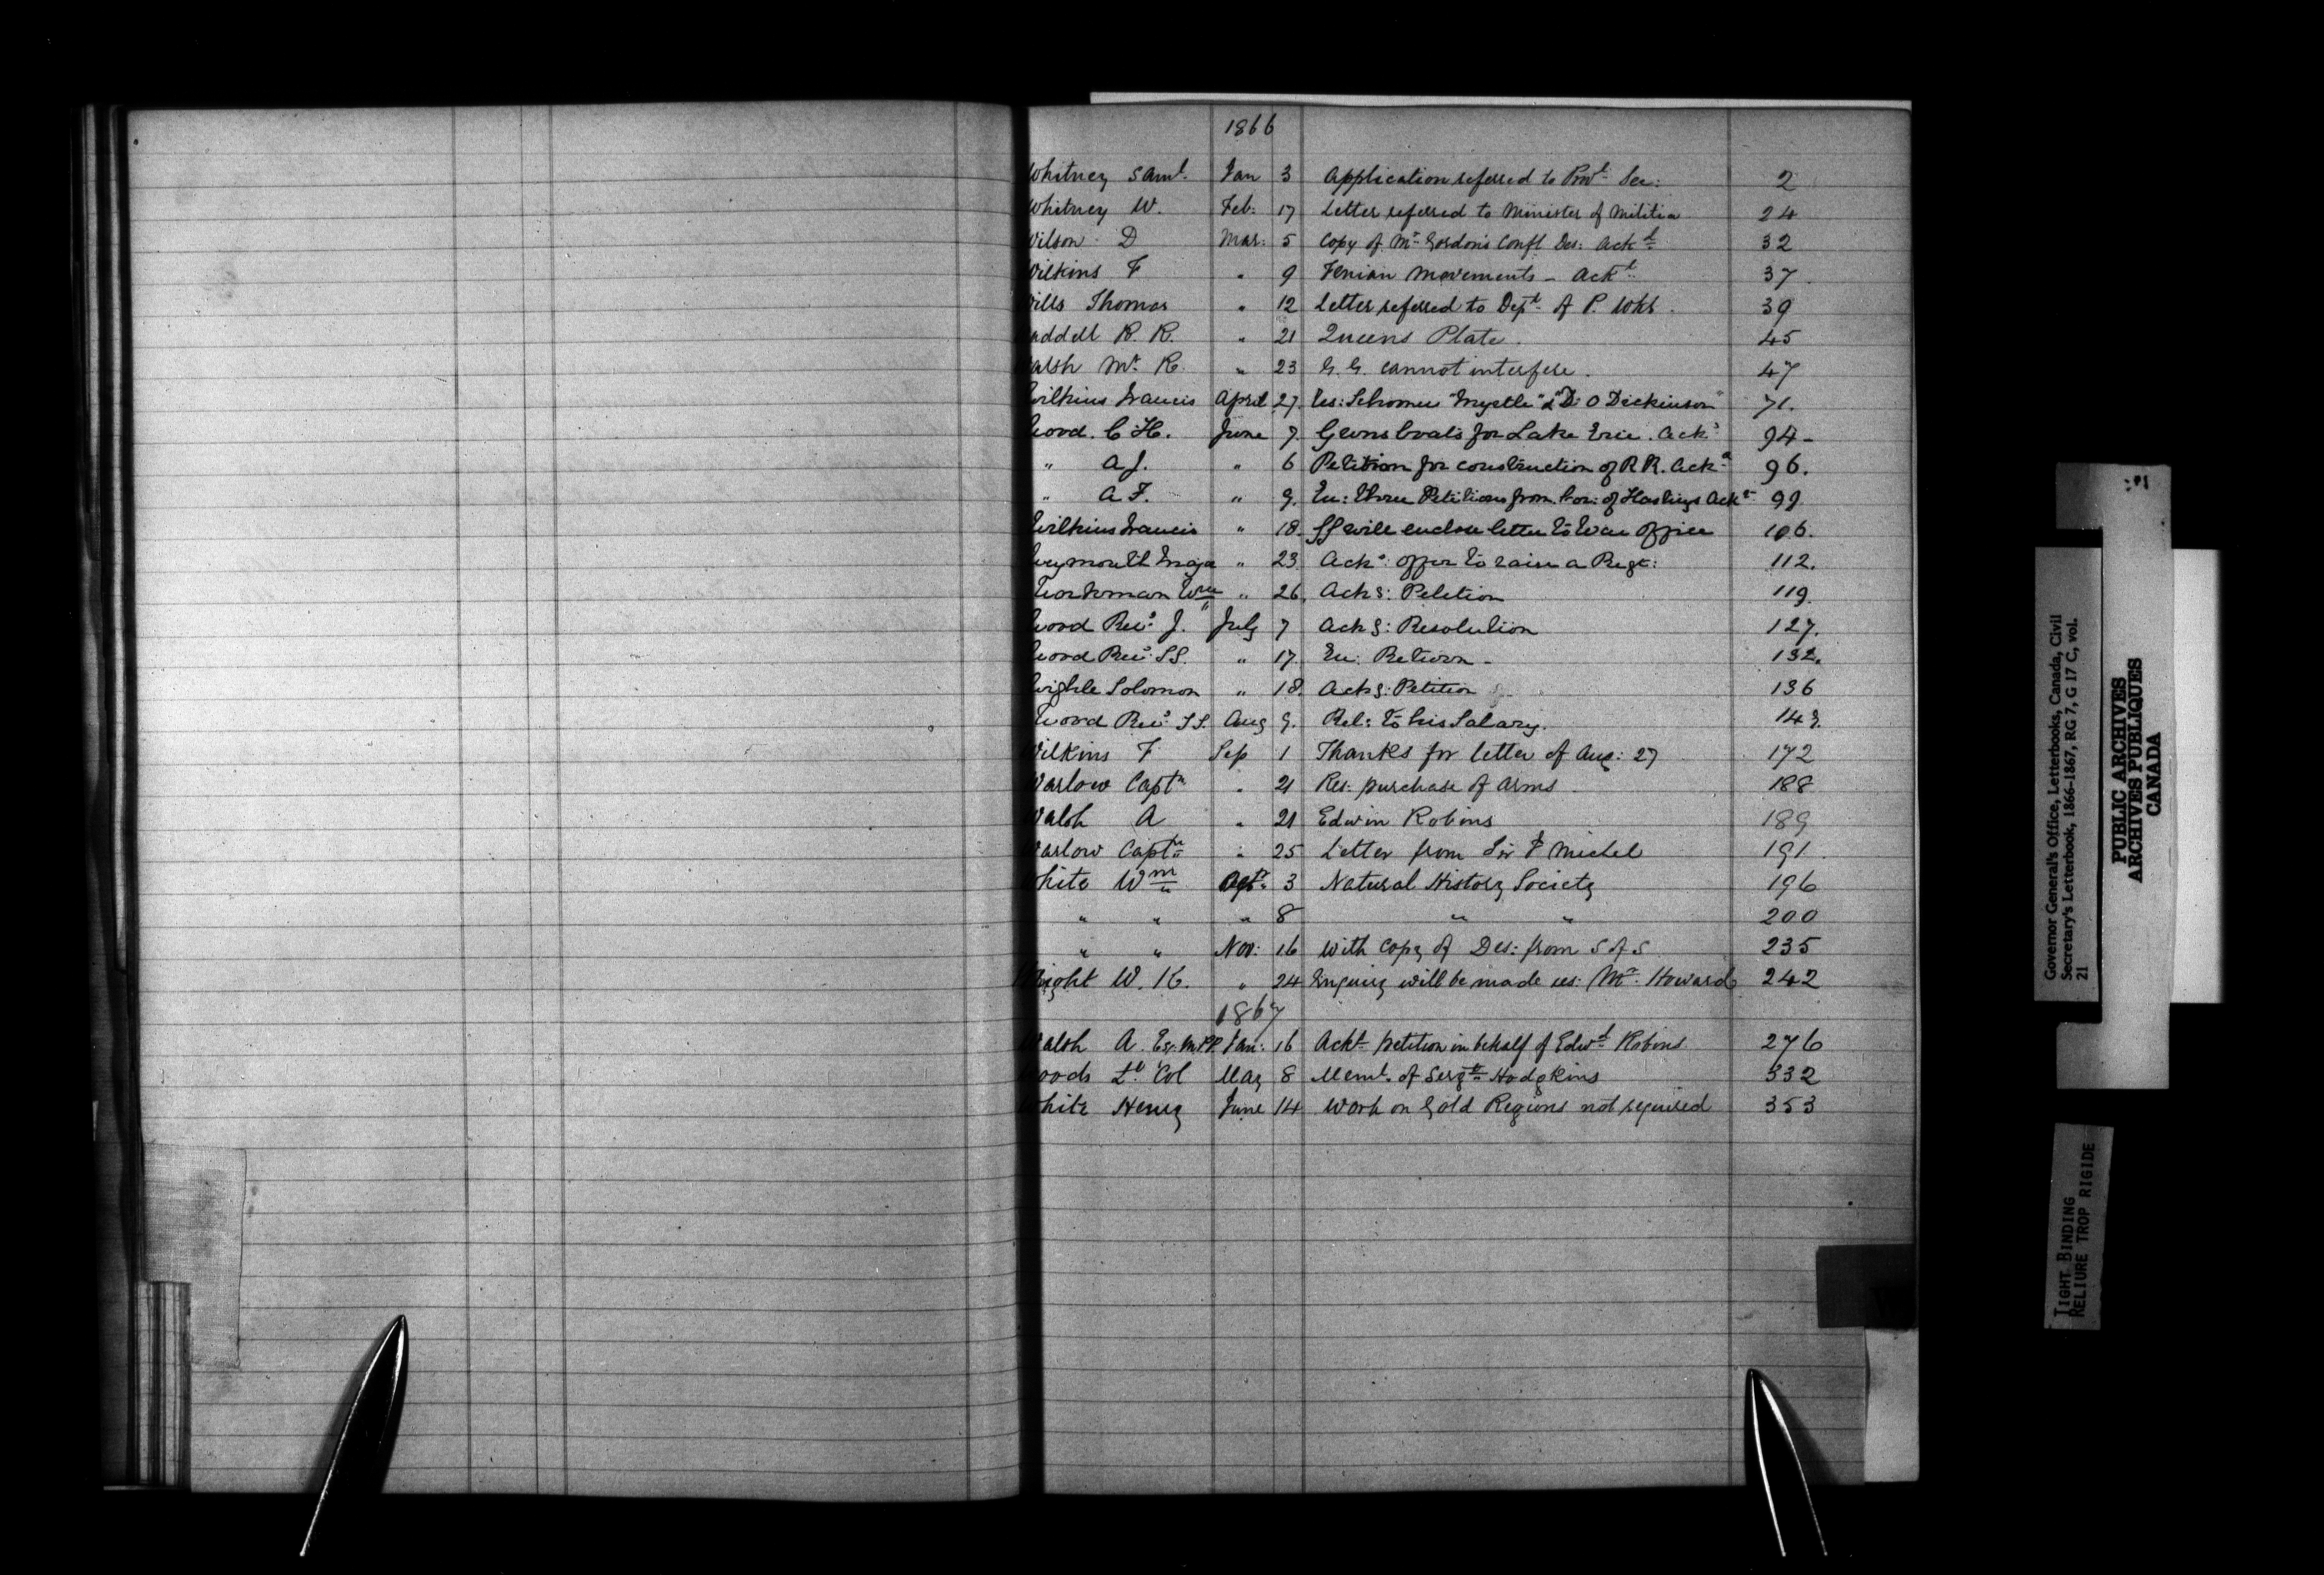 1866
Whitney Saml. Jan 3 Application referred to Provl Sec: 2
Whitney W. Feb: 17 Letter referred to Minister of Militia 24
Wilson D Mar: 5 Copy of Mr Gordon's Confl Des: Ackd 32
Wilkins F " 9 Fenian Movements - Ackd 37
Wills Thomas " 12 Letter referred to Dept of P. Wks. 39
Waddell R. R. " 21 Queens Plate. 45
Walsh Mr R. " 23 G. G. cannot interfere. 47
Wilkins Francis April 27 Res: Schooner "Myrtle" & "D. O Dickinson" 71.
Wood. C H. June 7. Gunboats for Lake Erie. Ackd 94-
" A J. " 6 Petition for construction of R R. Ackd 96.
" A F. " 9. En: three Petitions from Cor: of Hastings Ackd 99
Wilkins Francis " 18. GG will enclose letter to War Office 106.
Weymouth Major " 23 Ackg: offer to raise a Regt: 112.
Workman Wm " 26. Ackg: Petition 119.
Wood Revd J. July 7 Ackg: Resolution 127.
Wood Revd SS. " 17 En: Return - 132.
Wigle Solomon " 18. Ackg: Petition 136
Wood Revd SS. Aug 9. Rel: to his Salary. 149.
Wilkins F Sep 1 Thanks for letter of Aug: 27 172
Warlow Captn " 21 Res: purchase of Arms. 188
Walsh A " 21 Edwin Robins 189
Warlow Captn " 25 Letter from Sir J Michel 191
White Wm 3 Natural History Society 196
" " " 8 " " 200
" " Nov: 16 with Copy of Des: from S of S 235
Wright W. R. " 24 Enquiry will be made res: Mr Howard 242
1867
Walsh A. Esq. MPP. Jan: 16 Ackt petition in behalf of Edwd Robins 276
Woods Lt Col May 8 Meml. of Sergt Hodgkins 332
White Henry June 14 Work on Gold Regions not required 353
Governor General's Office, Letterbooks, Canada, Civil
Secretary's Letterbook, 1866-1867, RG 7, G 17 C, vol.
21
PUBLIC ARCHIVES
ARCHIVES PUBLIQUES
CANADA
TIGHT BINDING
RELIURE TROP RIGIDE